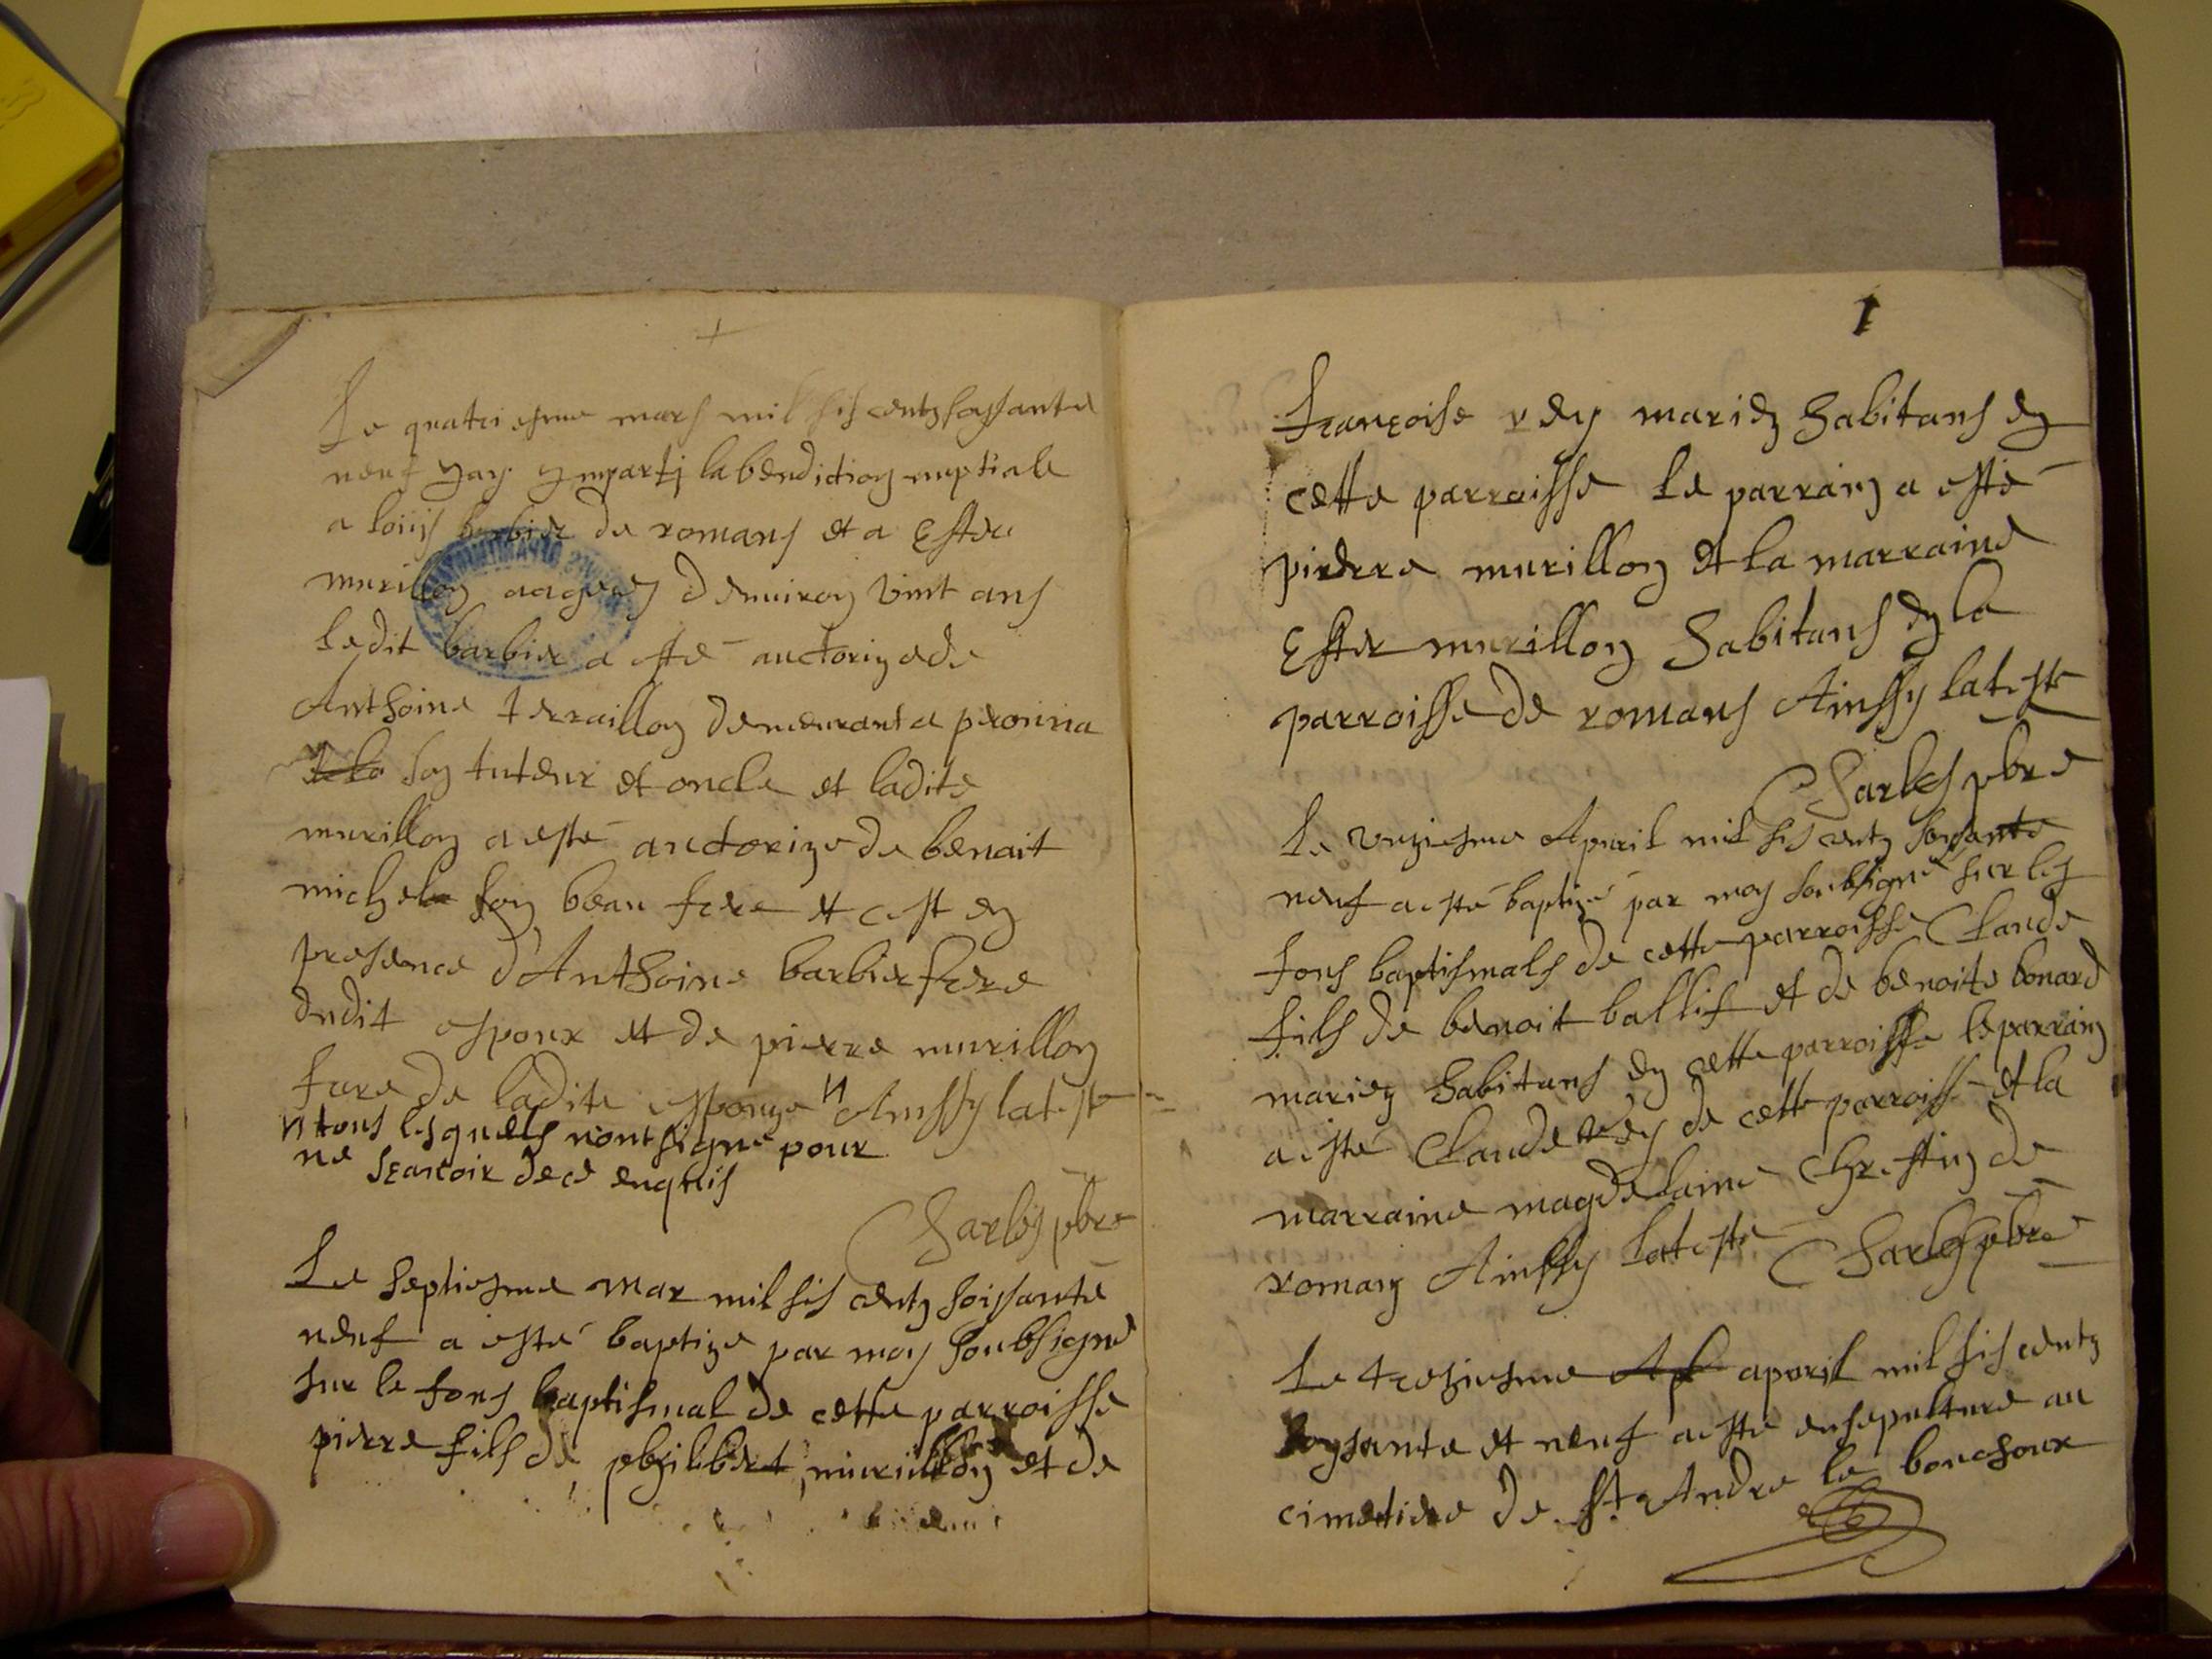 +
Le quatriesme mars mil sis centz soyssante
neuf Jay Jmparti la benediction nuptiale
a louis barbier de romans et a Ester
murillon aagees denuiron vint ans
Ledit barbier a esté auctorizé de
Anthoine terraillon demeurant a
son tuteur et oncle et ladite
murillon a esté auctorize de benoit
michel son beau frere et cest en
presence d'Anthoine barbier frere
dudit espoux et de pierre murillon
frere de ladite espouze Ainssy lateste
tous lesquels nont signé pour
ne scauoir de ce enquis
Charles pbre
Le septiesme mar mil sis centz soissante
neuf a esté baptize par moy soubsigné
sur le fons baptismal de cette parroisse
pierre fils de philibert murillon et de
1
françoise rey mariez habitans en
cette parroisse Le parrain a esté
pierre murillon et la marraine
Ester murillon habitans en la
parroisse de romans Ainssy lateste
Charles pbre
Le vnziesme Apuril mil sis centz soysante
neuf a esté baptizé par moy soubsigné sur les
fons baptismals de cette parroisse Claude
fils de benoit ballif et de benoite bonard
mariez habitans en cette parroisse le parrain
a esté Claude rey de cette parroisse et la
marraine magdelaine Chrestin de
romans Ainssy lateste Charles pbre
Le treziesme apvril mil sis centz
soysante et neuf a esté ensepulturé au
cimetiere de St Andre le bouchoux